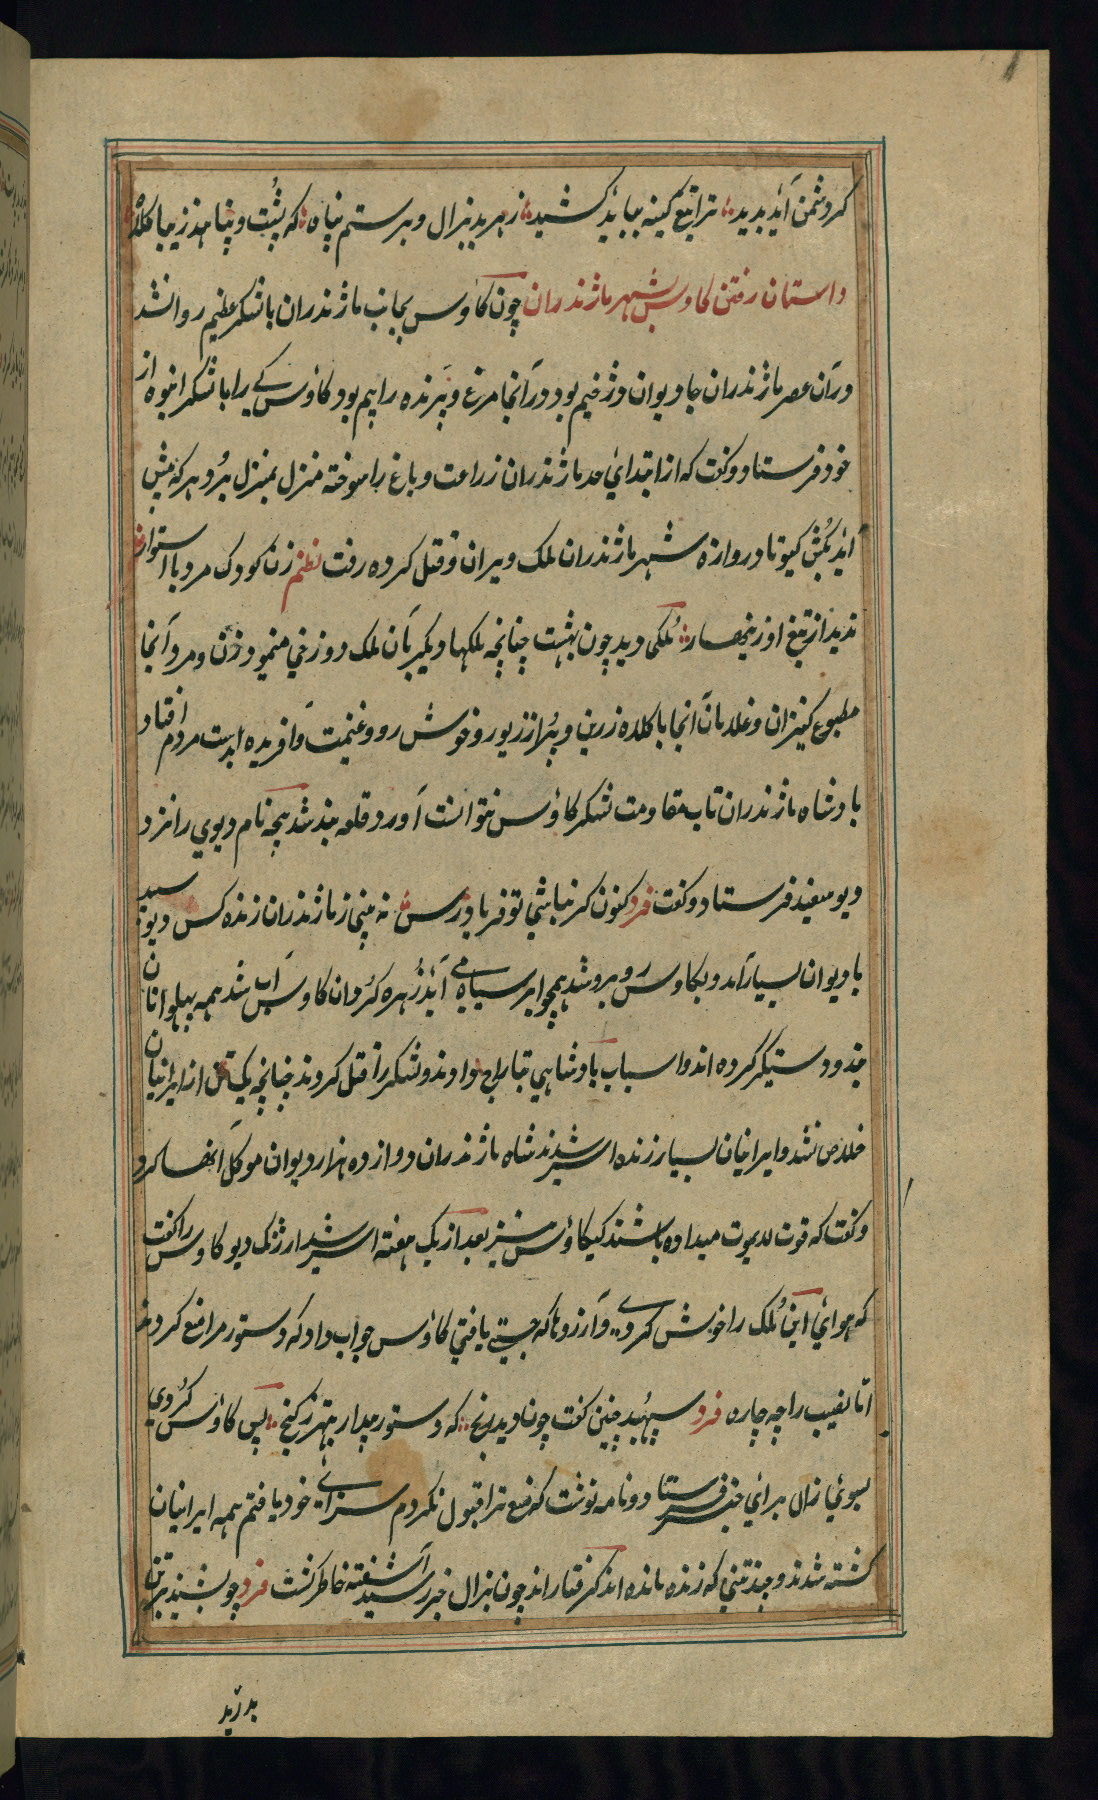 گر دشمن آید پدید ؞ ترا تیغ کینه بباید کشید ؞ ز هر بد بزال و برستم پناه ؞ که پشت و پناهند زیبا کلاه
داستان رفتن کاوس بشهر ماژندران چون کاوس بجانب ماژندران با لشکر عظیم روانشد
در آن عصر ماژندران جا دیوان و دژخیم بود در آنجا مرغ و پرنده را بیم بود کاوس کسے را با لشکر انبوه از
خود فرستاد و گفت که از ابتدائي حد ماژندران زراعت و باغ را سوخته منزل بمنزل برو هر که پیش
آید بکش گیو تا دروازه شهر ماژندران ملک ویران و قتل کرده رفت نظم زن کودک مرد با استوار
ندید از تیغ او زینهار ؞ ملکی دید چون بهشت چنانچه ملکها دیگر بآن ملک دوزخي مینمود و زن و مرد آنجا
مطبوع کنیزان و غلامان آنجا با کلاه زرین و پر از زیور و خوش رو و غنیمت وافر بدست مردم افتاد
بادشاه ماژندران تاب مقاومت لشکر کاؤس نتوانست آورد قلعه بند شد سنجه نام دیوي را نزد
دیو سفید فرستاد و گفت فرد کنون گر نباشي تو فریادرس ؞ نه بیني ز ماژندران زنده کس دیو سپید
با دیوان بسیار آمد و بکاوس روبرو شد همچو ابر سیاه مے آید زهره گردان کاوس آب شد همه پهلوانان
بند و دستگیر کرده اند و اسباب بادشاهي بتاراج دادند و لشکر را قتل کردند چنانچه یک تن از ایرانیان
خلاص نشد و ایرانیان بسیار زنده اسیر شدند شاه ماژندران دوازده هزار دیوان موکل آنها کرد
و گفت که قوت لایموت میداده باشند کیکاؤس نیز بعد از یک هفته اسیر شد ارژنگ دیو کاوس را گفت
که هوائي این ملک را خوش کردے و آرزوها که جستے یافتي کاؤس جواب داد که دستور مرا منع کردند
اما نصیب را چه چاره فرد سپهبد چنین گفت چونا دید رنج ؞ که دستور بیدار بهتر ز گنج ؞ پس کاؤس گردي
بسوي زال برائي خبر فرستاد و نامه نوشت که منع ترا قبول نکردم سزائے خود یافتم همه ایرانیان
کشته شدند و چند تني که زنده مانده اند گرفتار اند چون بزال خبر رسید آشفته خاطر گشت فرد چو بشنید بر تن
بدرید